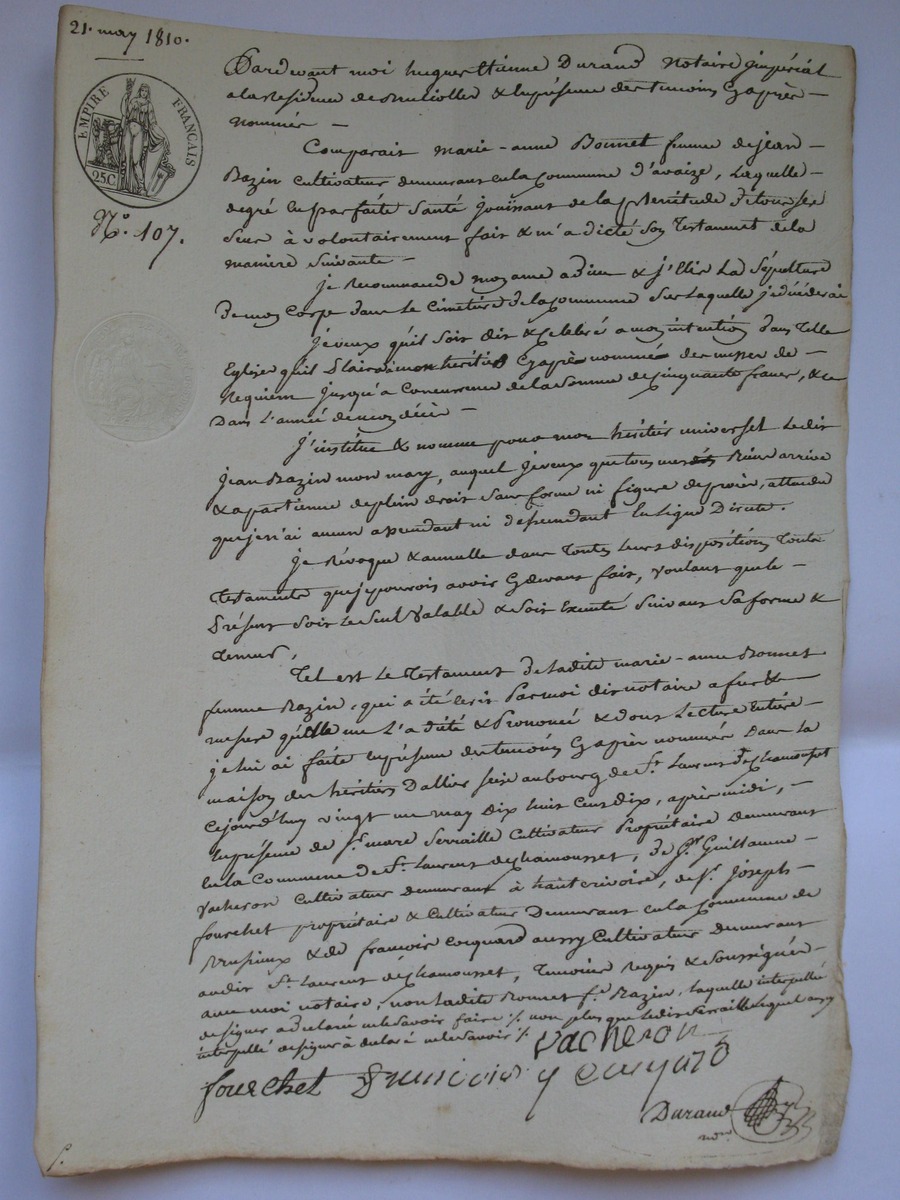 21. may 1810.
EMPIRE FRANÇAIS
25C
N°. 107.
Pardevant moi hugues Etienne Durand Notaire impérial
a la Residence de Brullolles & en présence des temoins cy après
nommés
Comparait marie-anne Bonnet femme de jean
Razin cultivateur demeurant en la commune d'avaize, Laquelle
degré en parfaite santé jouissant de la plenitude de tous ses
sens à volontairement fait & m'a dicté son Testament de la
maniere suivante
je recommande mon ame a dieu & j'Elis la sépulture
de mon corps dans le cimetière de la commune sur laquelle je décéderai
je veux qu'il soit dit & celebré a mon intention dans telle
Eglise qu'il plaira à mon heritier cy après nommé des messes de
Requiem jusqu'à concurrence de la somme de cinquante francs, & ce
Dans l'année de mon décès
J'institue & nomme pour mon héritier universel le dit
jean Razin mon mary, auquel je veux que tous mes biens arrive
& apartienne de plein droit sans forme ni figure de procès, attendu
que je n'ai aucun ascendant ni descendant En Ligne Directe.
je Révoque & annulle dans toutes leurs dispositions touts
testaments que je pourrois avoir cy devant fait, voulant que le
Présent soit le seul valable & soit Executé suivant sa forme &
teneur,
Tel est le testament de ladite marie-anne Bonnet
femme Razin, qui a été écrit Par moi dit notaire a fur &
mesure qu'elle me l'a dicté & Prononcé & dont Lecture Entiere
je lui ai faite en présence des temoins cy après nommés Dans la
maison des héritiers Dallier seize au bourg de St. Laurent de chamousset
Cejourd'huy vingt un may Dix huit cent dix, après midi,
En présence de Sr. marc Serraille Cultivateur Propriétaire demeurant
en la Commune de St. Laurent de chamousset, de Sr. Guillaume
Vacheron cultivateur demeurant à hauterivoire, de Sr. joseph
fourchet propriétaire & cultivateur Demeurant en la commune de
Brusieux & de françois cocquard aussy Cultivateur demeurant
audit St. Laurent de chamousset, temoins requis & soussignés
avec moi notaire, non ladite Bonnet fe. Razin, laquelle interpellé
de signer a declaré ne le savoir faire /. non plus que ledit Serraille lequel aussy
interpellé de signer à declaré ne le savoir /.
vacheron
fourchet françois cocquard
Durand
nore